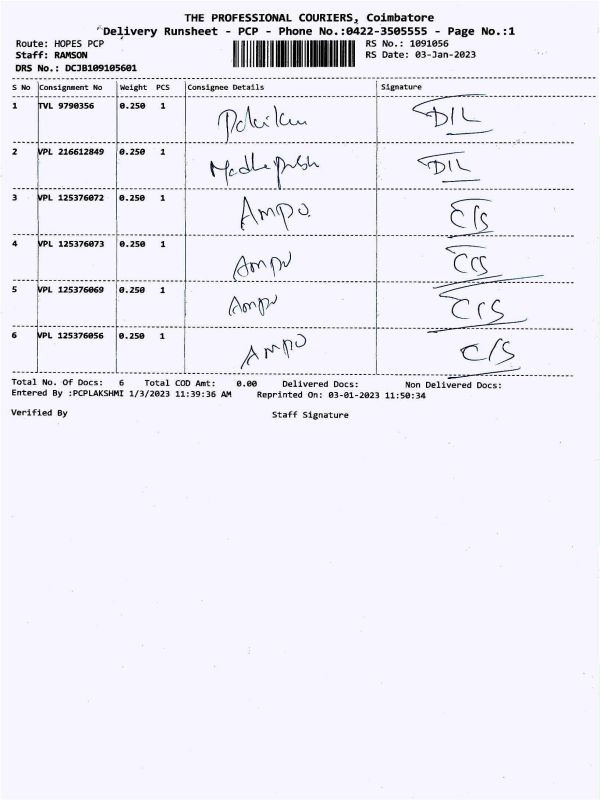 THE PROFESSIONAL COURIERS, Coimbatore
Delivery Runsheet - PCP - Phone No.:0422-3505555 - Page No.:1
Route: HOPES PCP RS No.: 1091056
Staff: RAMSON RS Date: 03-Jan-2023
DRS No.: DCJB109105601
S No Consignment No Weight PCS Consignee Details Signature
1 TVL 9790356 0.250 1 DIL
2 VPL 216612849 0.250 1 DIL
3 VPL 125376072 0.250 1 Ampo C/S
4 VPL 125376073 0.250 1 Ampo C/S
5 VPL 125376069 0.250 1 Ampo C/S
6 VPL 125376056 0.250 1 AMPO C/S
Total No. Of Docs: 6 Total COD Amt: 0.00 Delivered Docs: Non Delivered Docs:
Entered By :PCPLAKSHMI 1/3/2023 11:39:36 AM Reprinted On: 03-01-2023 11:50:34
Verified By Staff Signature